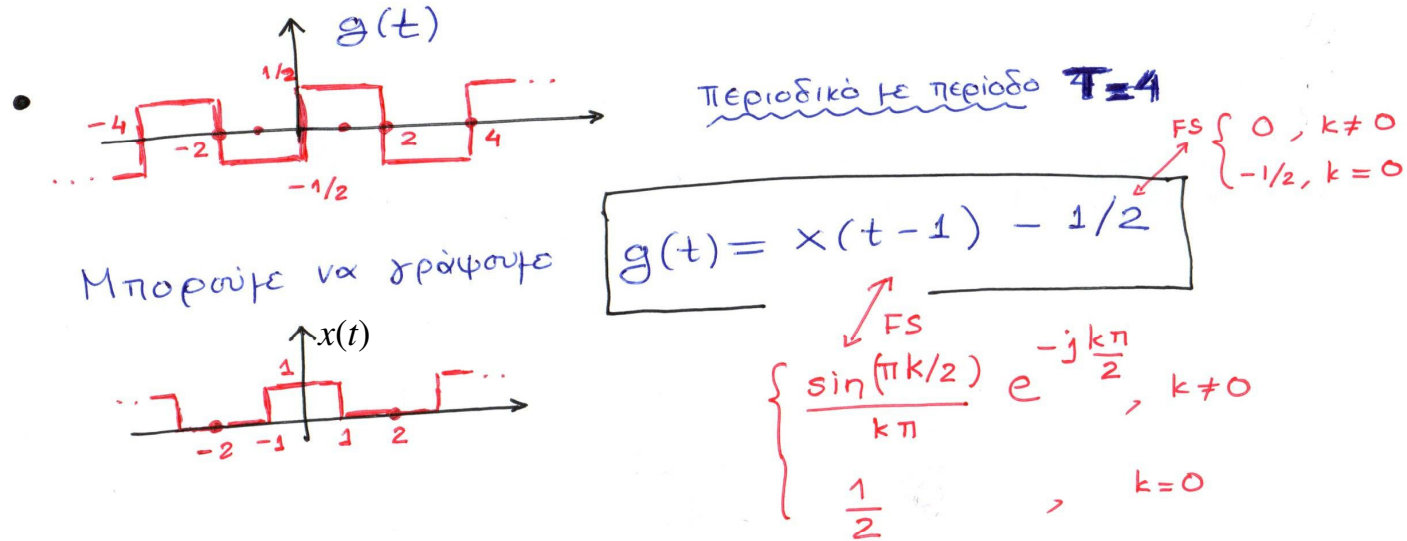 g(t)
1/2
-4
-2
2
4
-1/2
...
...
περιοδικό με περίοδο T=4
FS { 0 , k≠0
-1/2, k=0
Μπορούμε να γράψουμε
g(t) = x(t-1) - 1/2
FS
x(t)
1
...
...
-2 -1 1 2
{ sin(πk/2) / kπ e^{-j kπ/2} , k≠0
1/2 , k=0